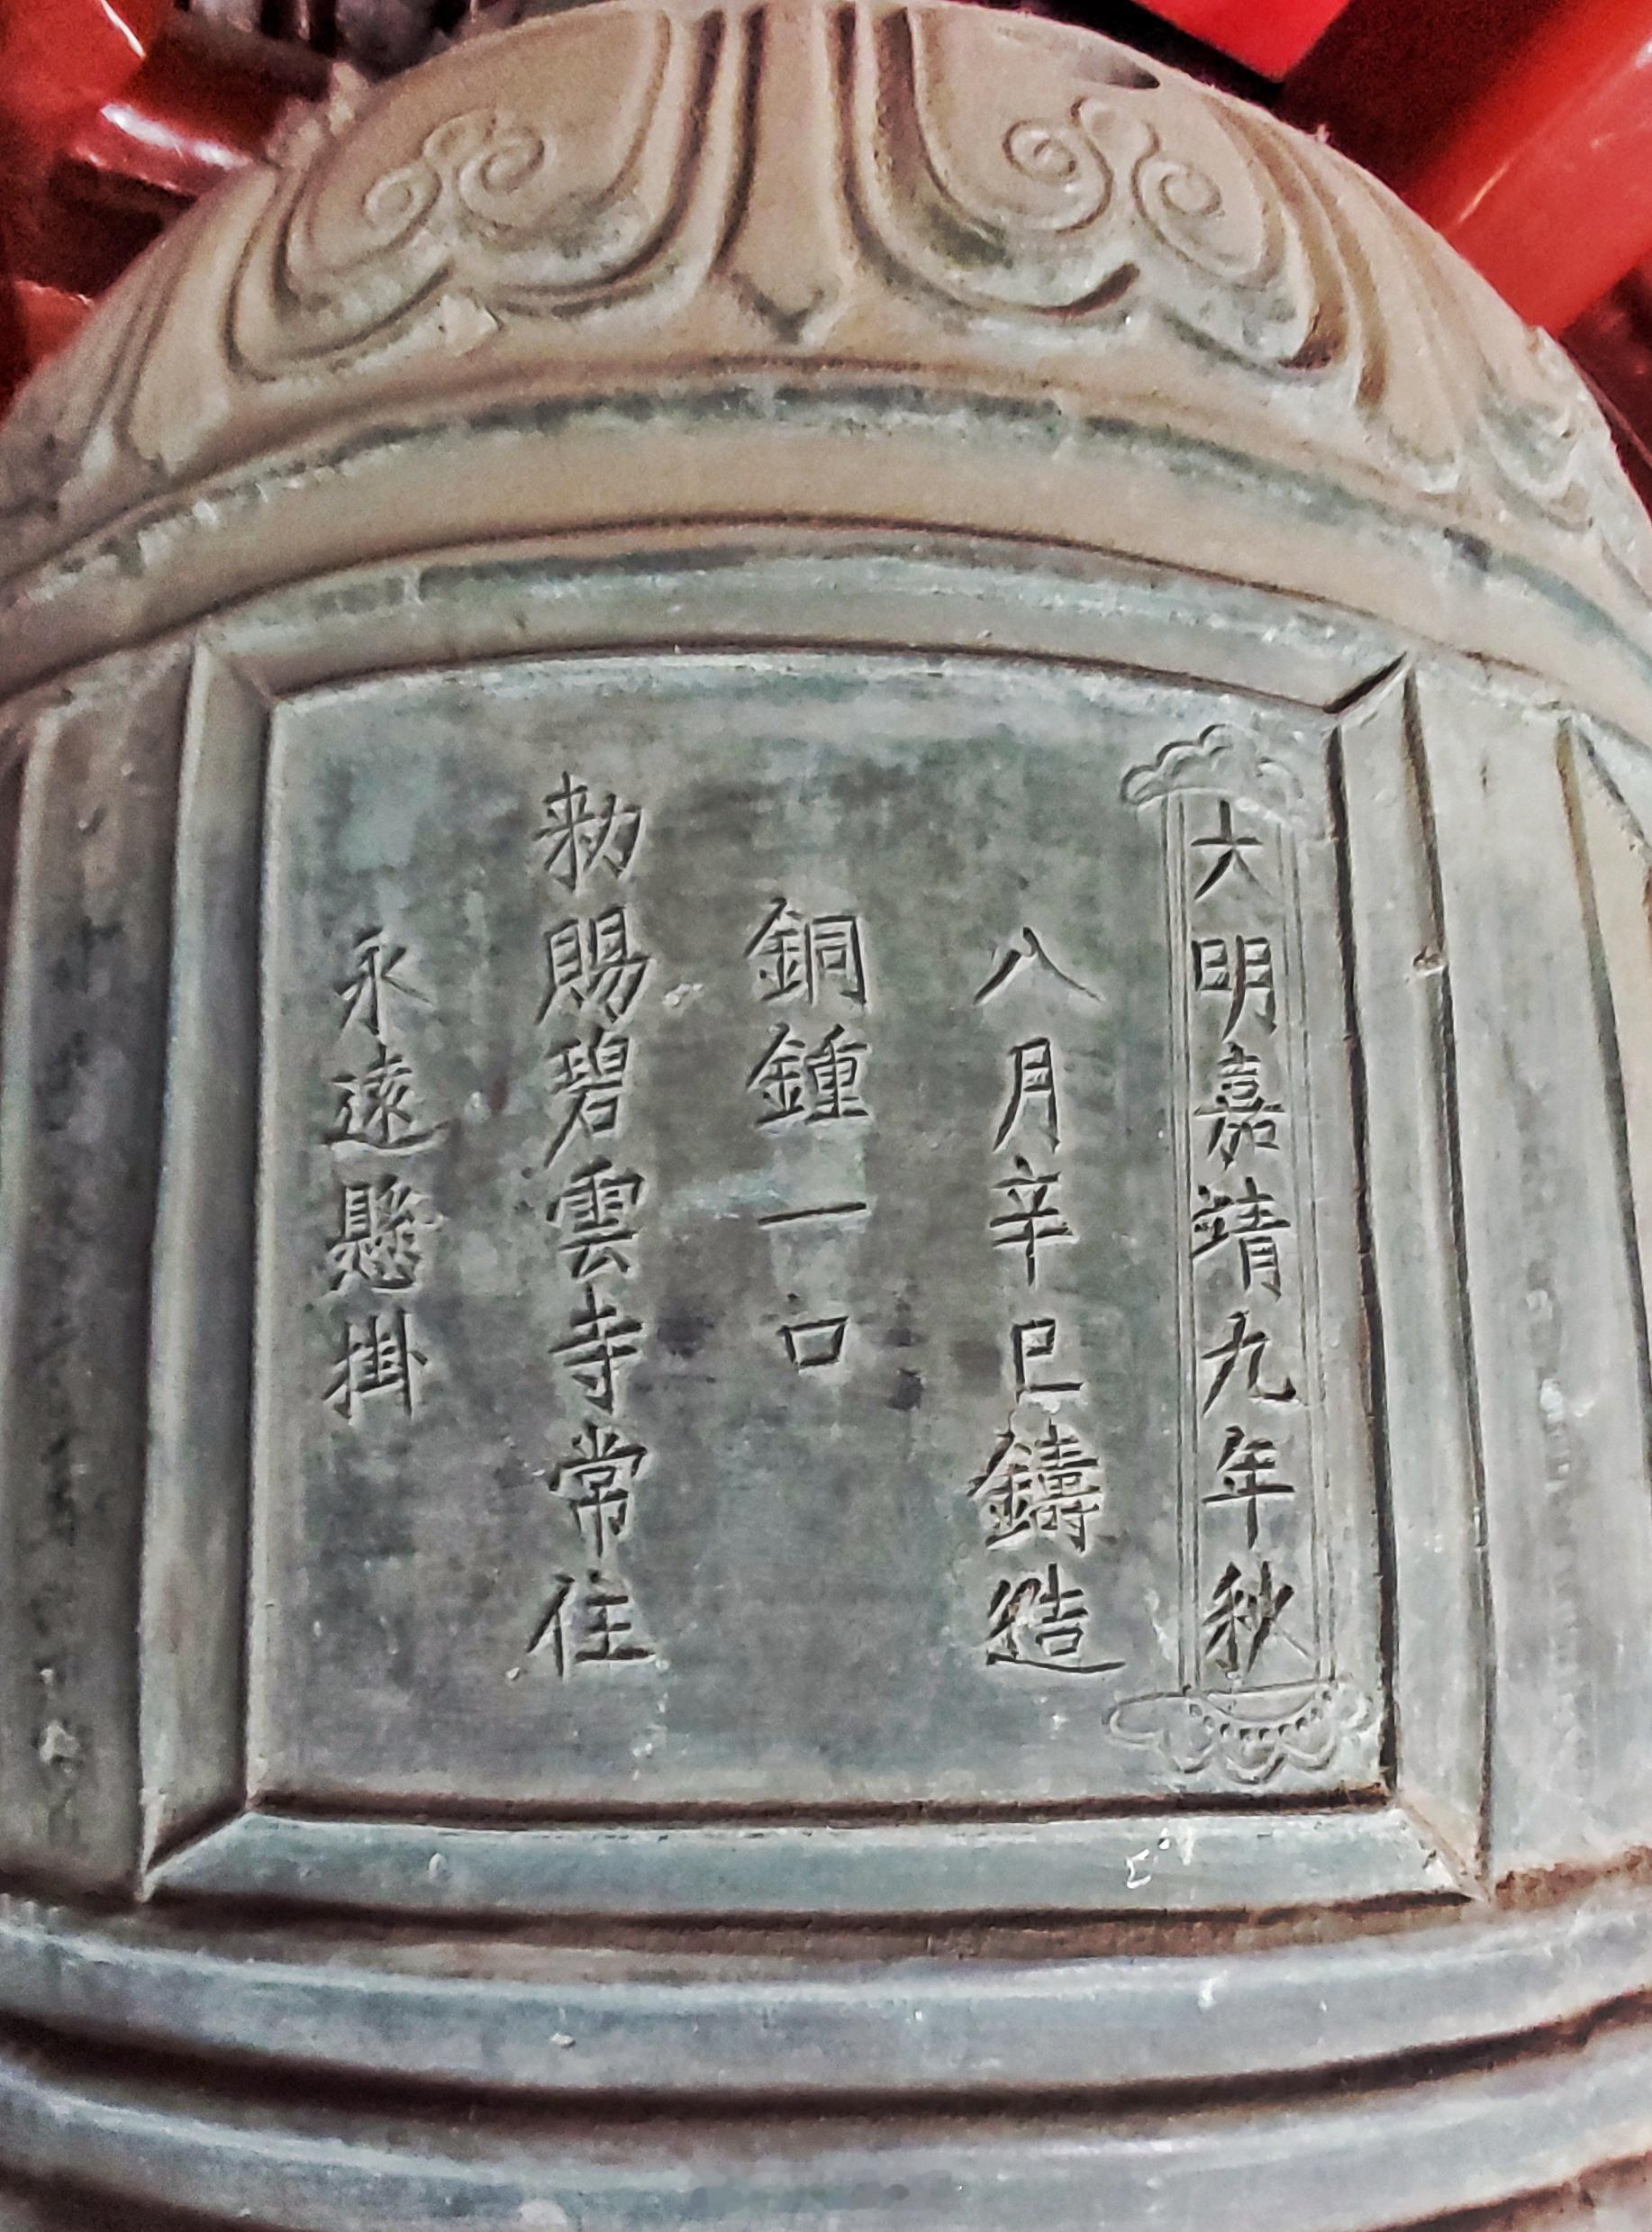 大明嘉靖九年秋
八月辛巳鑄造
銅鍾一口
勑賜碧雲寺常住
永遠懸掛